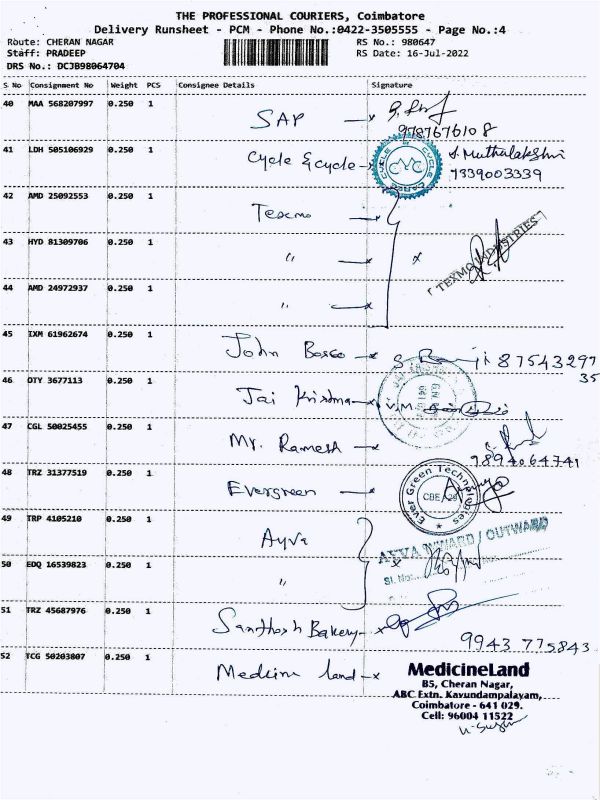 THE PROFESSIONAL COURIERS, Coimbatore
Delivery Runsheet - PCM - Phone No.:0422-3505555 - Page No.:4
Route: CHERAN NAGAR RS No.: 980647
Staff: PRADEEP RS Date: 16-Jul-2022
DRS No.: DCJB98064704
S No Consignment No Weight PCS Consignee Details Signature
40 MAA 568207997 0.250 1 SAP
9787676108
41 LDH 505106929 0.250 1 Cycle & Cycle CYCLE & CYCLE CYC S. Muthulakshmi
7339003339
42 AMD 25092553 0.250 1 Texmo
TEXMO INDUSTRIES
43 HYD 81309706 0.250 1 "
44 AMD 24972937 0.250 1 "
45 IXM 61962674 0.250 1 John Bosco 87543297
35
46 OTY 3677113 0.250 1 Jai Krishna V.M
47 CGL 50025455 0.250 1 Mr. Ramesh
9894064741
48 TRZ 31377519 0.250 1 Evergreen Ever Green Technologies CBE
49 TRP 4105210 0.250 1 Ayva
AYVA INWARD / OUTWARD
50 EDQ 16539823 0.250 1 "
Sl. No:
51 TRZ 45687976 0.250 1 Santhosh Bakery
9943 775843
52 TCG 50203807 0.250 1 Medicine land
MedicineLand
B5, Cheran Nagar,
ABC Extn. Kavundampalayam,
Coimbatore - 641 029.
Cell: 96004 11522